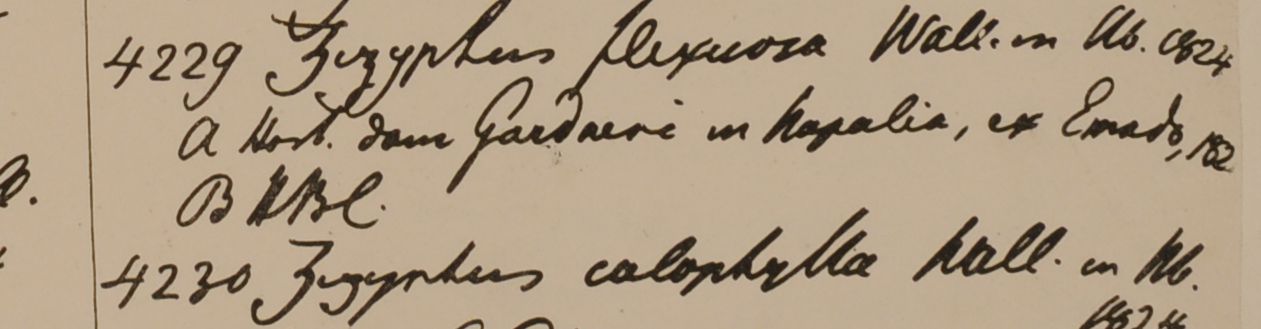 4229 Zizyphus flexuosa Wall. in Hb. 1824
A Hort. dom Gardneri in Napalia, ex Emodo, 182
B HBC.
4230 Zizyphus calophylla Wall. in Hb.